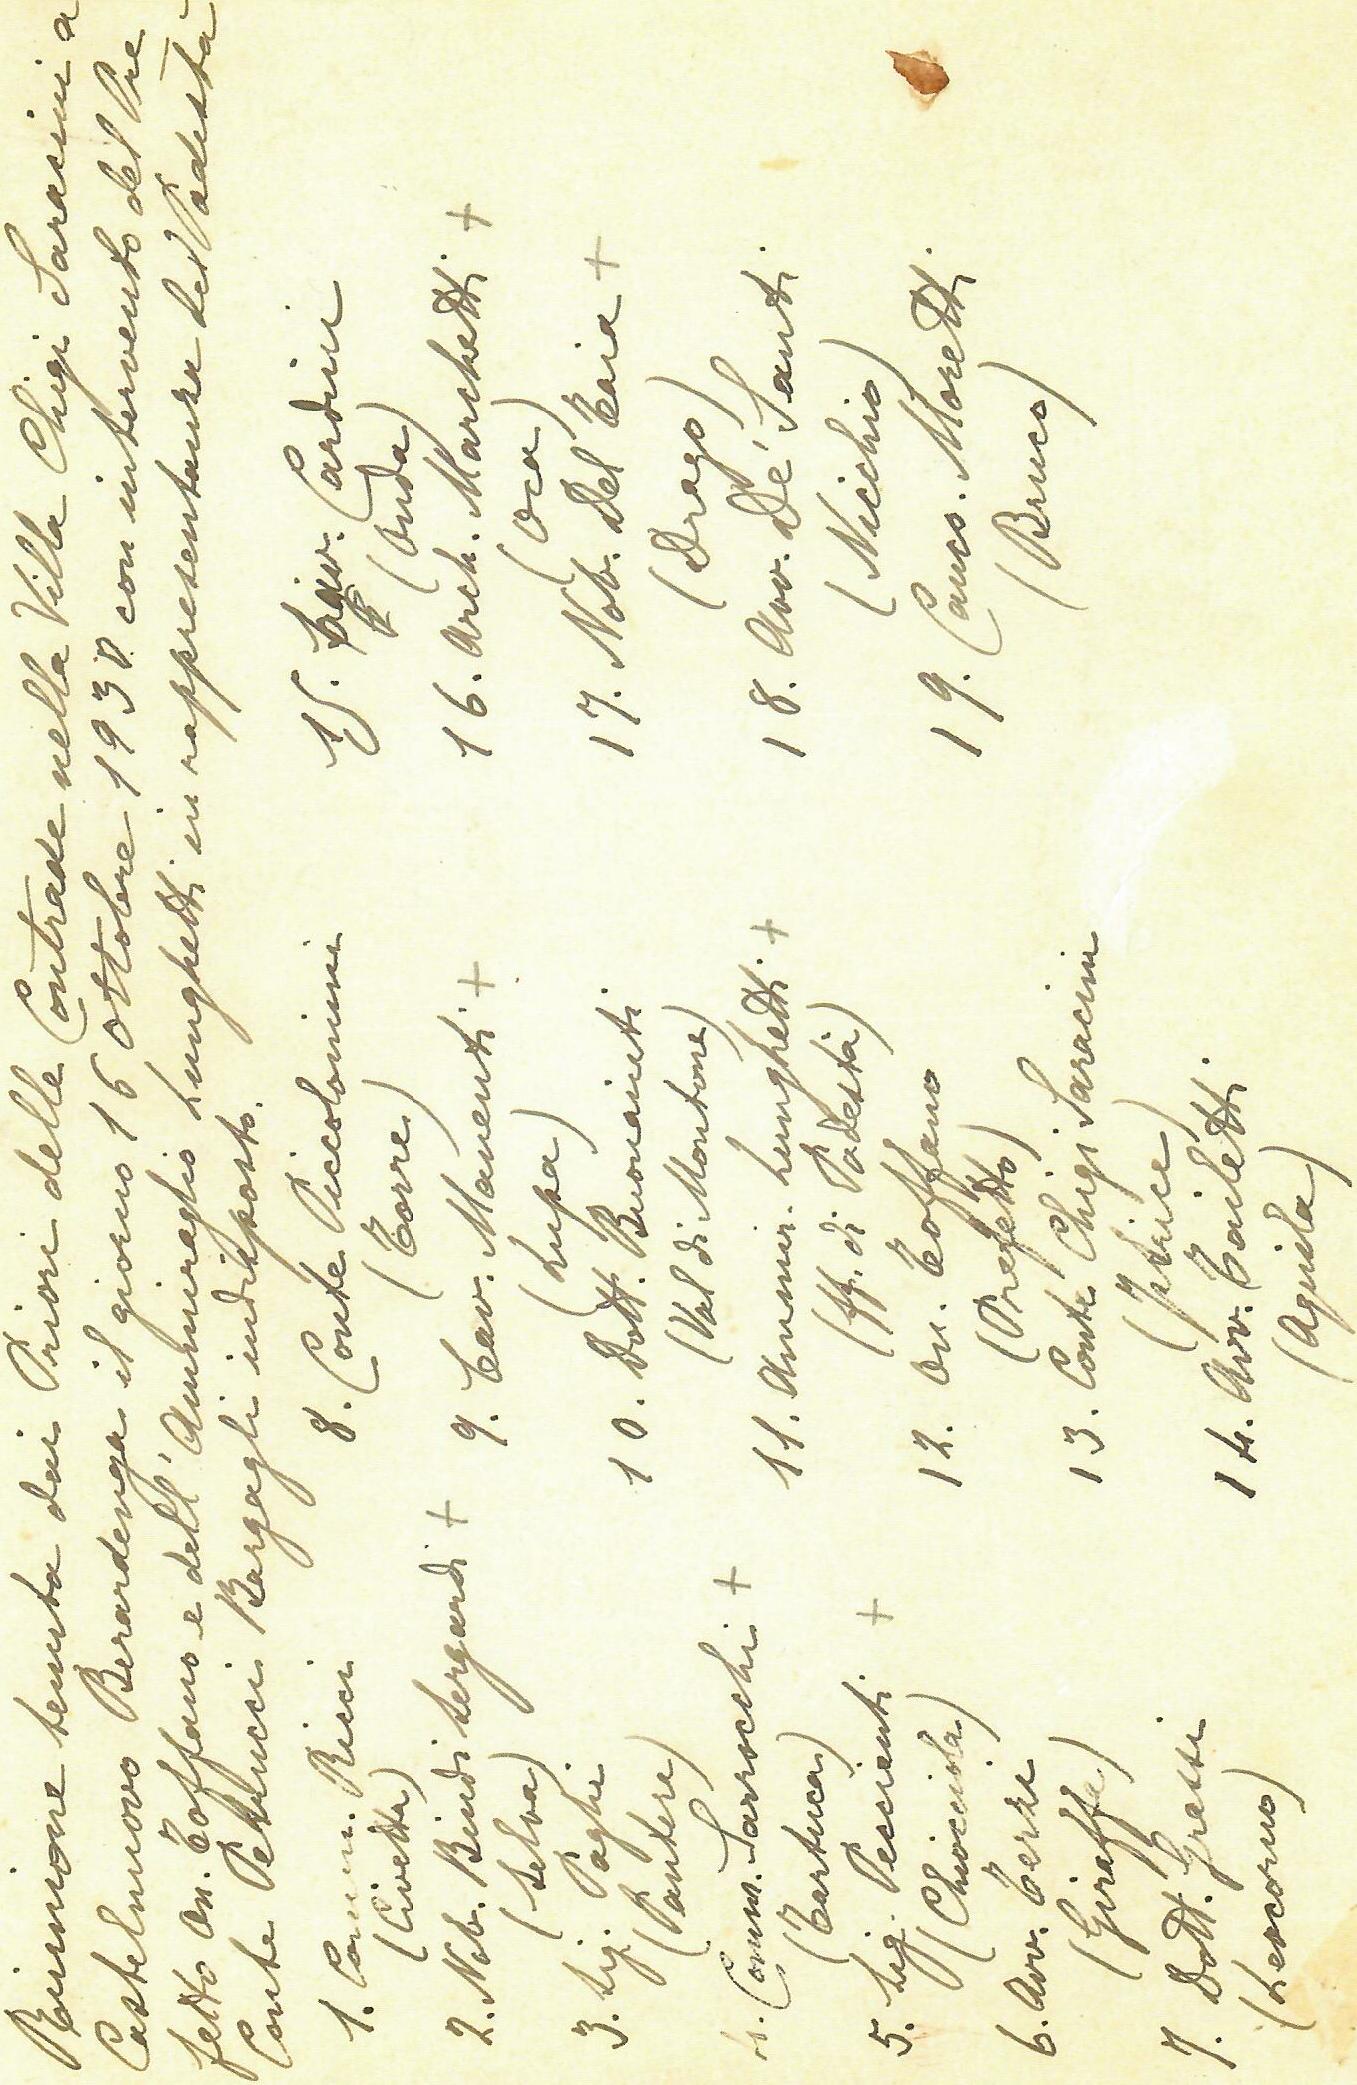 Riunione tenuta dai Priori delle Contrade nella Villa Chigi Saracini a
Castelnuovo Berardenga il giorno 16 Ottobre 1930 con intervento del Pre
fetto On. Toffano e dell'Ammiraglio Lunghetti in rappresentanza del Podestà
Conte Petrucci Bargagli indisposto.
1. Comm. Ricci
(Civetta)
2. Nob. Bindi Sergardi +
(Selva)
3. Sig. Paghi
(Pantera)
4. Comm. Sarrocchi +
(Tartuca)
5. Sig. Peccianti +
(Chiocciola)
6. Avv. Terzi
(Giraffa)
7. Dott. Grassi
(Leocorno)
8. Conte Piccolomini
(Torre)
9. Cav. Manenti +
(Lupa)
10. Dott. Buonainti
(Val di Montone)
11. Ammir. Lunghetti +
(ff. di Podestà)
12. On. Toffano
(Prefetto)
13. Conte Chigi Saracini
(Istrice)
14. Avv. Tailetti
(Aquila)
15. Cardini
(Onda)
16. Arch. Marchetti +
(Oca)
17. Nob. Del Taia +
(Drago)
18. Avv. De' Santi
(Nicchio)
19. Canco. Moretti
(Bruco)